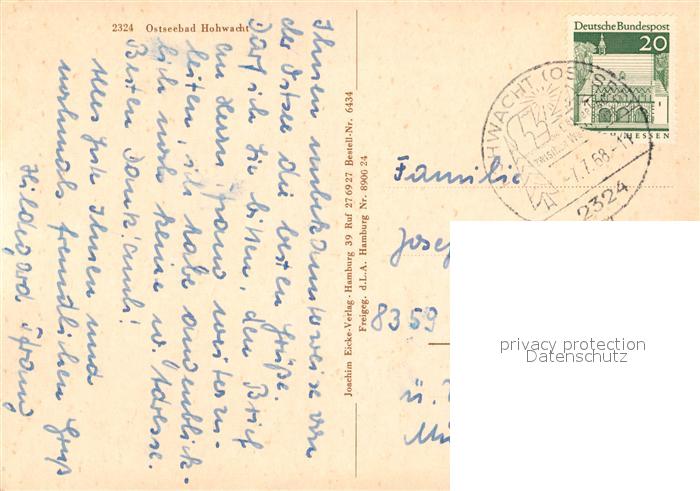 2324 Ostseebad Hohwacht
Ihnen unbekannterweise von
der Ostsee die besten Grüße.
Darf ich Sie bitten, den Brief
an Herrn Franz weiterzu-
leiten, ich habe augenblick-
lich noch keine w. Adresse.
Besten Dank auch!
Alles Gute Ihnen und
nochmals freundlichen Gruß
Hildegard Franz
Joachim Eicke-Verlag · Hamburg 39 Ruf 27 69 27 Bestell-Nr. 6434
Freigeg. d. L.A. Hamburg Nr. 8900 24
Deutsche Bundespost
20
HESSEN
HOHWACHT (OSTSEE)
-7.7.68-11
2324
Familie
Josef
8359
ü.
privacy protection
Datenschutz